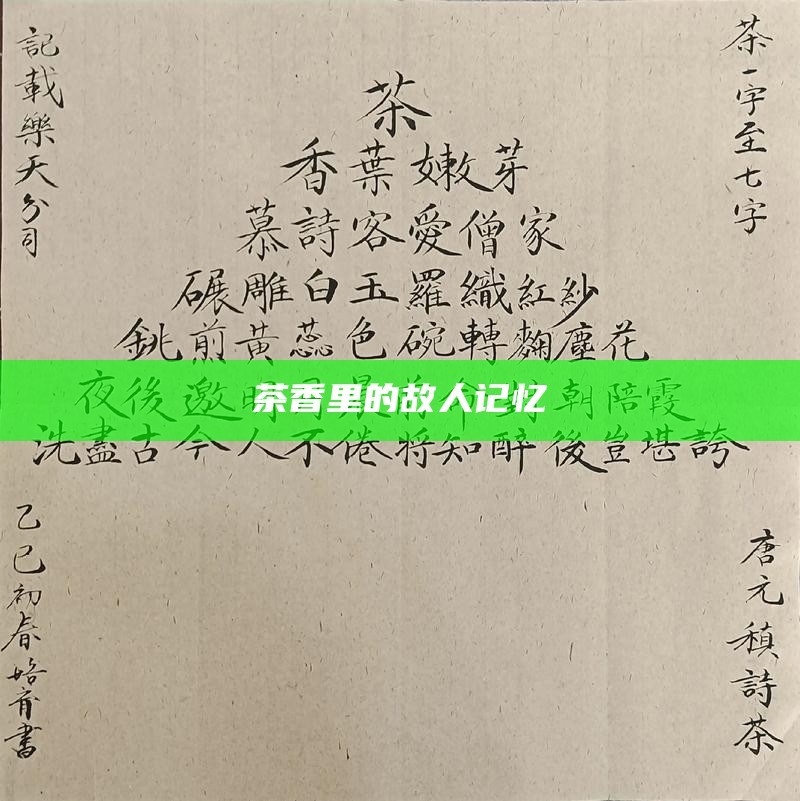 茶一字至七字
茶
香葉嫩芽
慕詩客愛僧家
碾雕白玉羅織紅紗
銚煎黃蕊色碗轉麴塵花
夜後邀朝陪霞
茶香里的故人记忆
洗盡古今人不倦將知醉後豈堪誇
唐元稹詩茶
記載樂天分司
乙巳初春
書